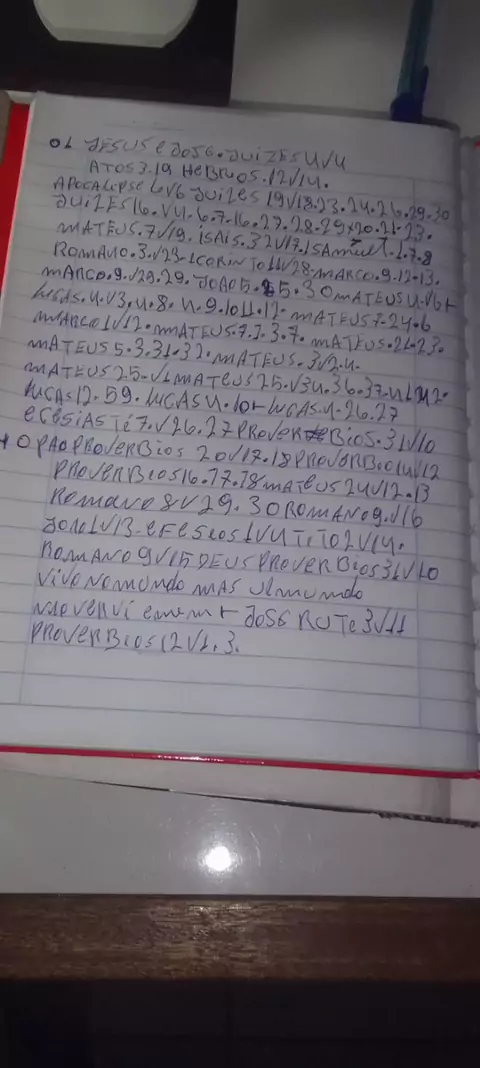 01 JESUS e JOSE. JUIZES 4V4
ATOS 3.19 HEBREOS.12V14.
APOCALIPSE 6V6 JUIZES 19V18.23.24.26.29.30
JUIZES 16.V4.6.7.16.27.28.29 20.21.23.
MATEUS.7V19. ISAIS.32V17. 1.7.8
ROMANO.3.V23-1CORINTO 11V28-MARCO.9.12.13.
MARCO.9.V29.29. JOAO 5. 5.30 MATEUS
LUCAS.4.V3.4.8.4.9.10.11.12. MATEUS 7-24.6
MARCO 1V12. MATEUS.7.1.3.7. MATEUS.21.23.
MATEUS 5.3.31.32. MATEUS.3V2.4.
MATEUS 25.V1 MATEUS 25.V34.36.37.
LUCAS 12.59. LUCAS 4.10 LUCAS.4.26.27
ECESIASTÉ 7.V26.27 PROVERBIOS.31V10
+ O PAO PROVERBIOS 20V17.18
PROVERBIOS 16.17.18 MATEUS 24V12.13
ROMANO 8V29.30 ROMANO 9.V16
JOAO 1V13-EFESEOS 1V4 TITO 2V14.
ROMANO 9V15 DEUS PROVERBIOS 31V10
VIVO NO MUNDO MAS MUNDO
JOSE RUTE 3V11
PROVERBIOS 12V1.3.